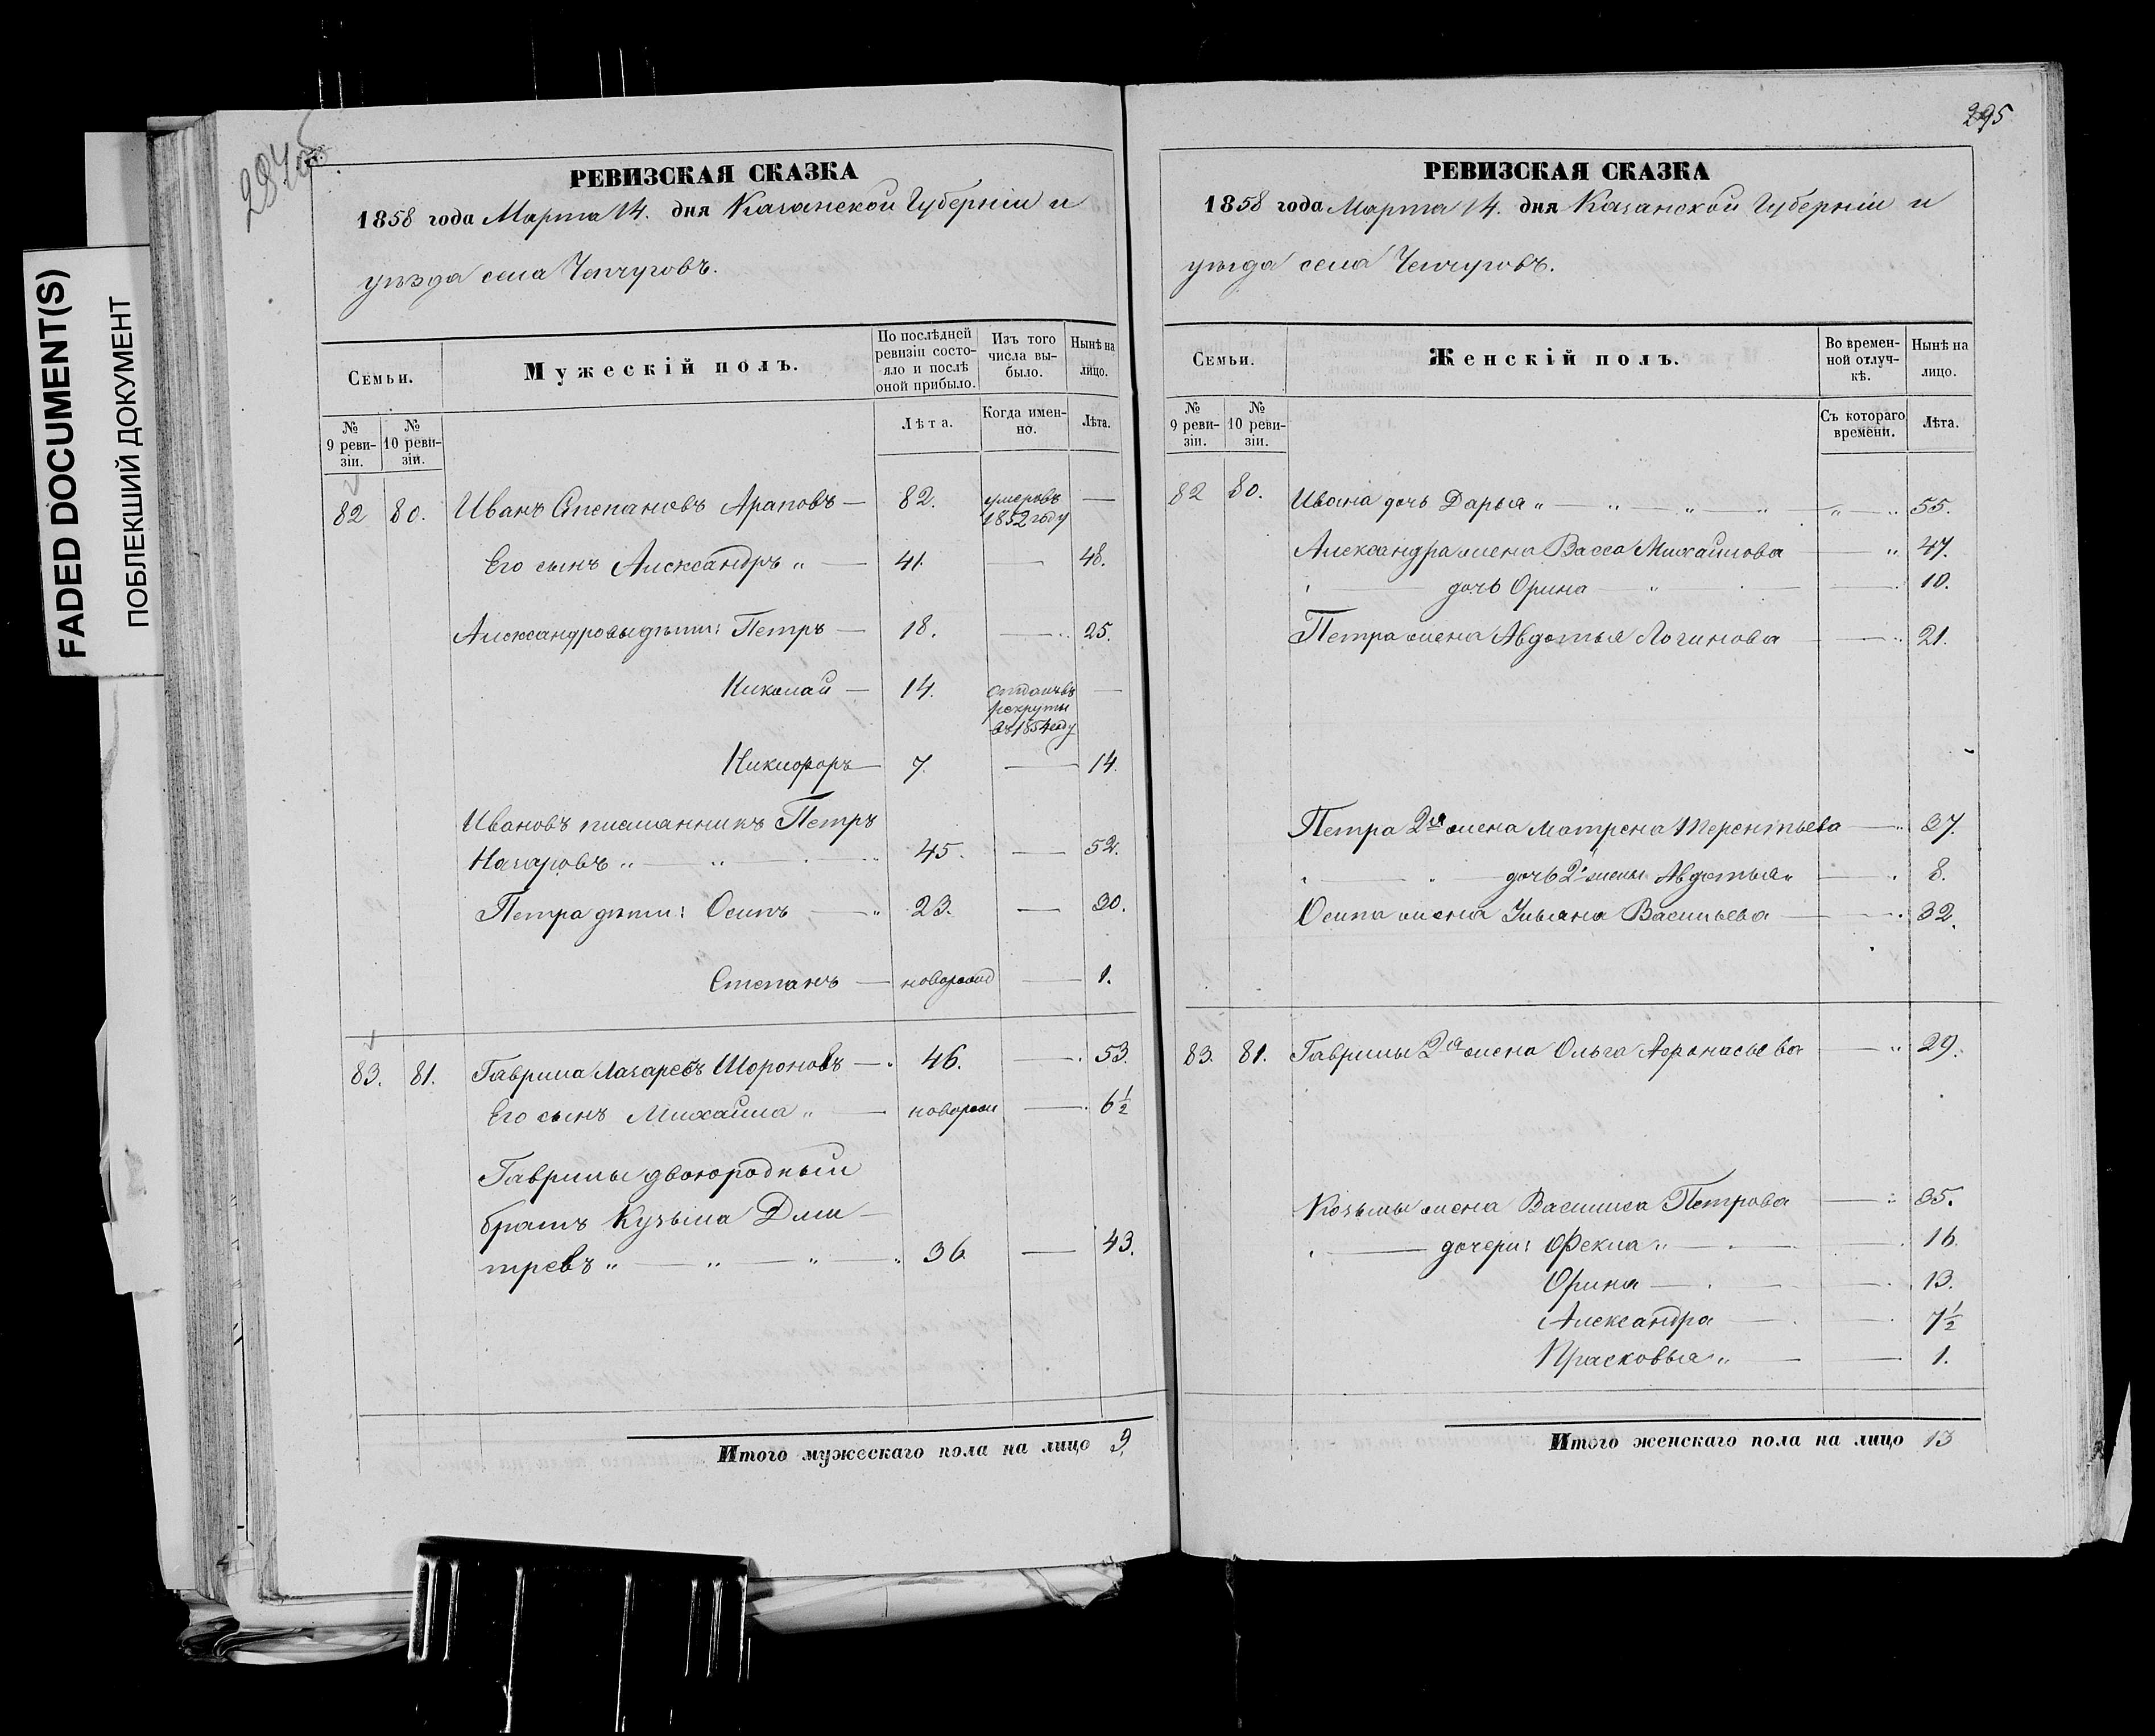 FADED DOCUMENT(S)
ПОБЛЕКШИЙ ДОКУМЕНТ
294об.
РЕВИЗСКАЯ СКАЗКА
1858 года Марта 14. дня Казанской Губерніи и
уѣзда села Чепчуговъ.
Семьи.
Мужескій полъ.
По послѣдней ревизіи состояло и послѣ оной прибыло.
Изъ того числа выбыло.
Нынѣ на лицо.
№ 9 ревизіи.
№ 10 ревизіи.
Лѣта.
Когда именно.
Лѣта.
82 80. Иванъ Степановъ Араповъ — 82. умеръ въ 1852 году —
Его сынъ Александръ „ — 41. — 48.
Александровы дѣти: Петръ — 18. — 25.
Николай — 14. отданъ въ рекруты въ 1854 году —
Никифоръ — 7. — 14.
Ивановъ племянникъ Петръ
Назаровъ „ — „ 45. — 52.
Петра дѣти: Осипъ — „ 23. — 30.
Степанъ — новорожд — 1.
83. 81. Гаврила Лазаревъ Шороновъ — 46. — 53.
Его сынъ Михайла „ — новорож — 6½
Гаврилы двоюродный
братъ Кузьма Дми-
тревъ „ — „ — „ — 36 — 43.
Итого мужескаго пола на лицо 9,
295
РЕВИЗСКАЯ СКАЗКА
1858 года Марта 14. дня Казанской Губерніи и
уѣзда села Чепчуговъ.
Семьи.
Женскій полъ.
Во временной отлучкѣ.
Нынѣ на лицо.
№ 9 ревизіи.
№ 10 ревизіи.
Съ котораго времени.
Лѣта.
82 80. Ивана дочь Дарья „ — „ — „ — „ — „ — „ 55.
Александра жена Васса Михайлова — „ 47.
„ — дочь Орина — „ — 10.
Петра жена Авдотья Логинова — „ 21.
Петра 2я жена Матрена Терентьева — „ 37.
„ — „ — дочь 2й жены Авдотья „ — 8.
Осипа жена Ульяна Васильева — 32.
83. 81. Гаврилы 2я жена Ольга Афонасьева — „ 29.
Козьмы жена Василиса Петрова — „ 35.
„ — дочери: Фекла „ — 16.
Орина — 13.
Александра — 7½
Прасковья „ — 1.
Итого женскаго пола на лицо 13